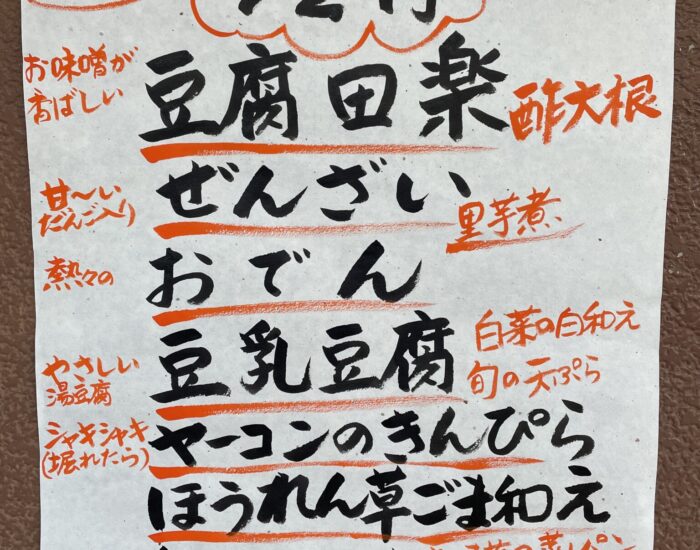 お味噌が
香ばしい
豆腐田楽
酢大根
甘〜い
だんご入り
ぜんざい
里芋煮
熱々の
おでん
やさしい
湯豆腐
豆乳豆腐
白菜の白和え
旬の天ぷら
シャキシャキ
(堀れたら)
ヤーコンのきんぴら
ほうれん草ごま和え